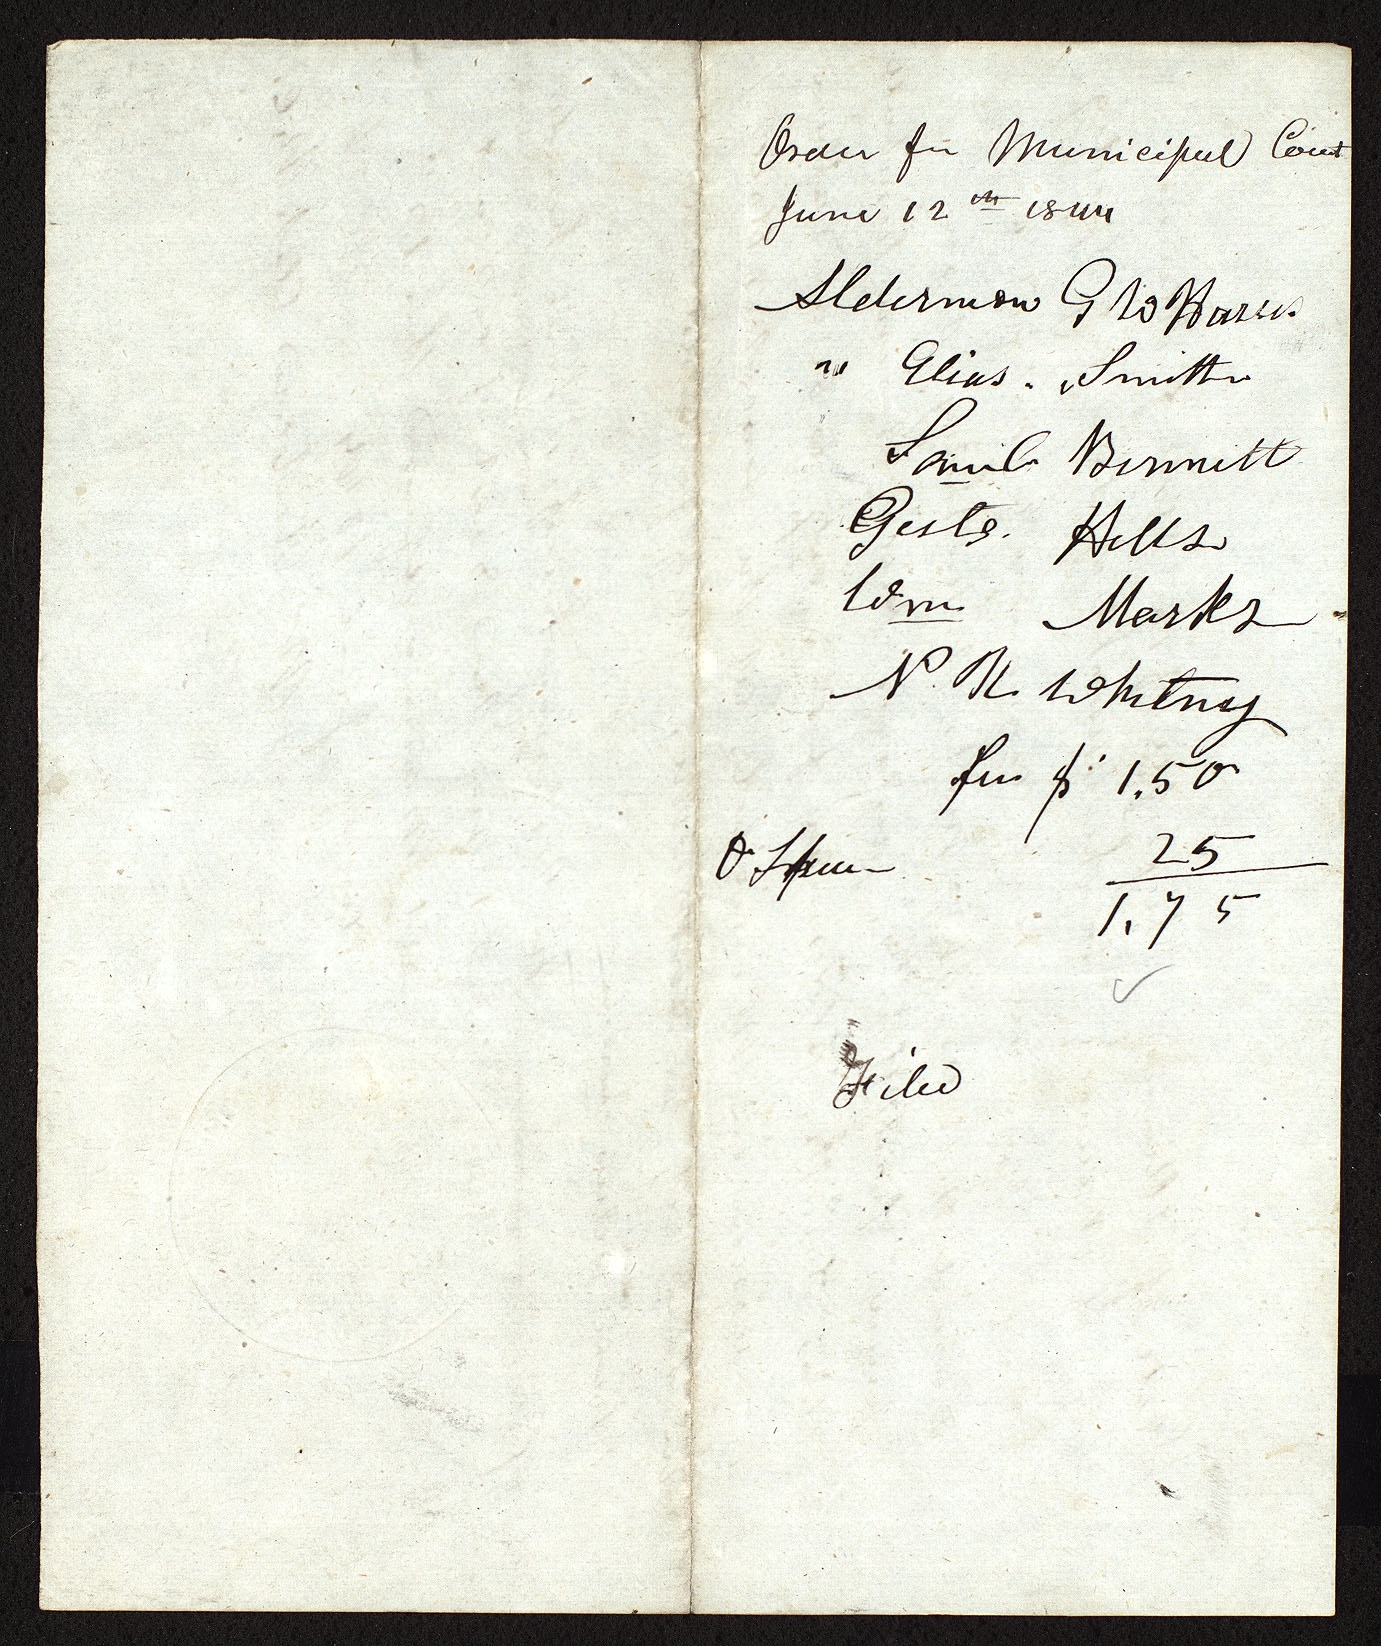 Order for Municipal Court
June 12th 1844
Alderman G W Harris
" Elias. Smith
Saml Bennitt
Gusts. Hills
Wm Marks
N. K. Whitney
for $ 1.50
25
1.75
Filed